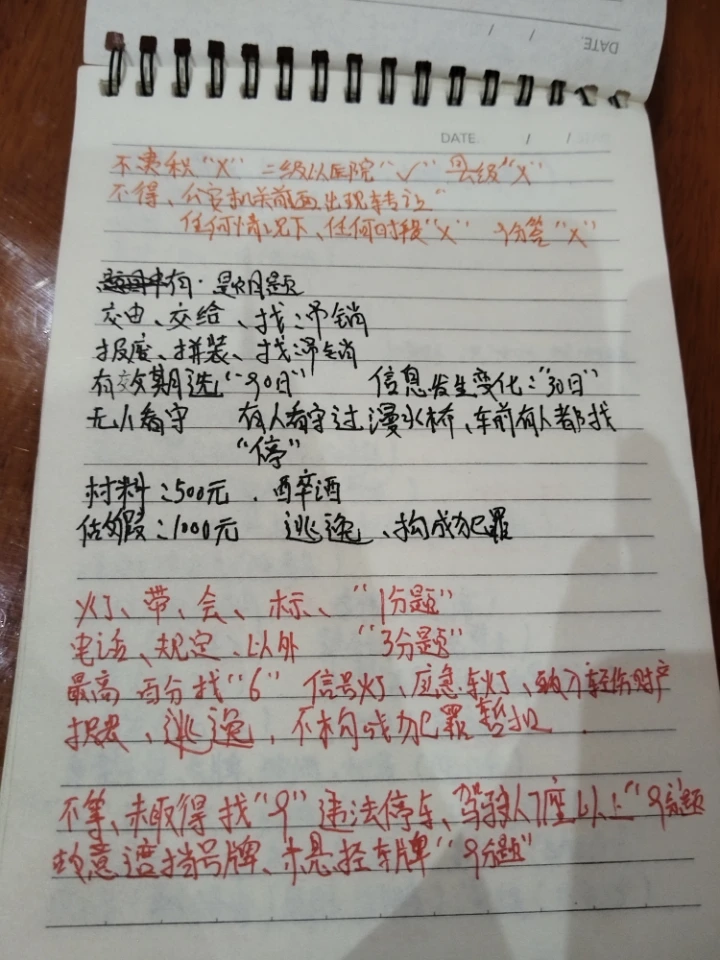 DATE.
DATE / /
不累积"X" 二级以医院"✓" 县级"X"
不得、公安机关前面出现车专让"
任何情况下、任何时段"X" 分签"X"
题目中有·是明题
交由、交给、找:吊销
报废、拼装、找:吊销
有效期选"90日" 信息发生变化:"30日"
无人看守 有人看守过漫水桥、车前有人都找
"停"
材料:500元.酉卒酒
估贿假:1000元 逃逸、构成犯罪
灯、带、会、标、"1分题"
电话、规定、以外 "3分题"
最高 百分找"6" 信号灯、应急车灯、致人轻伤财产
损、逃逸,不构成犯罪暂扣
不等、未取得找"9"违法停车、驾驶人7座以上"9分题
故意遮挡号牌、未悬挂车牌"9分题"